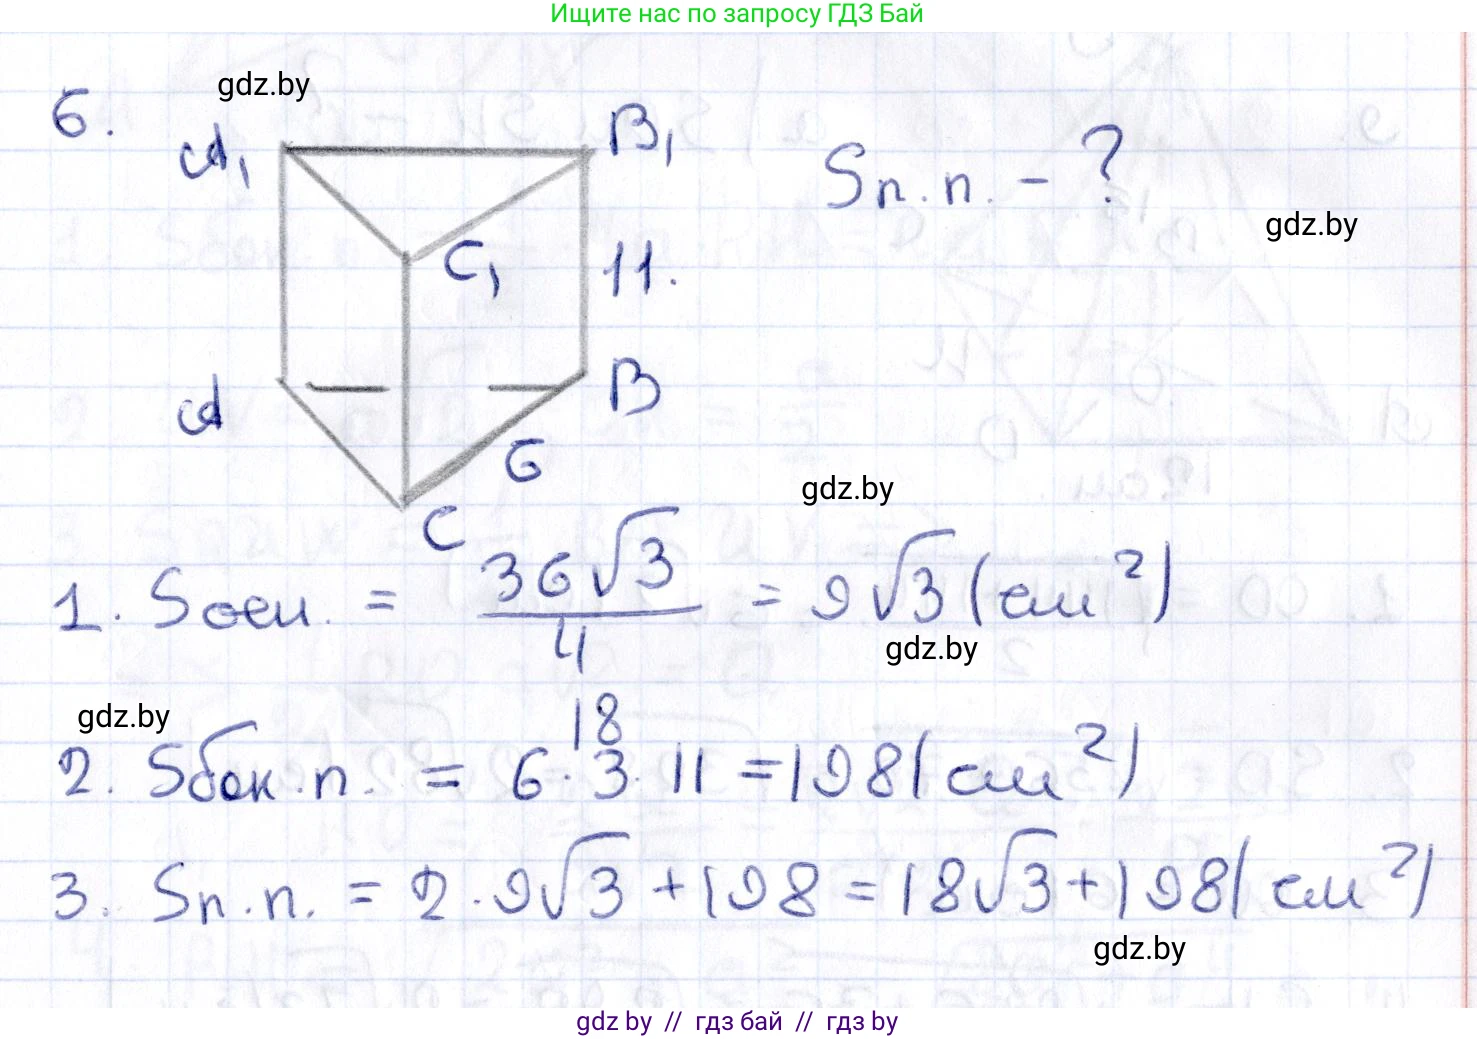 Ищите нас по запросу ГДЗ Бай
gdz.by
6.
A₁
B₁
Sп.п. - ?
gdz.by
C₁
11.
A
B
6
C
gdz.by
1. Sосн. = 36√3/4 = 9√3 (см²)
gdz.by
gdz.by
18
2. Sбок.п. = 6·3·11 = 198 (см²)
3. Sп.п. = 2·9√3 + 198 = 18√3 + 198 (см²)
gdz.by
gdz by // гдз бай // гдз by